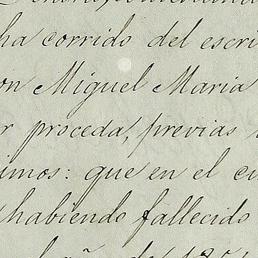 ha corrido del escri
on Miguel Maria
r proceda, previas
imos: que en el ci
habiendo fallecido